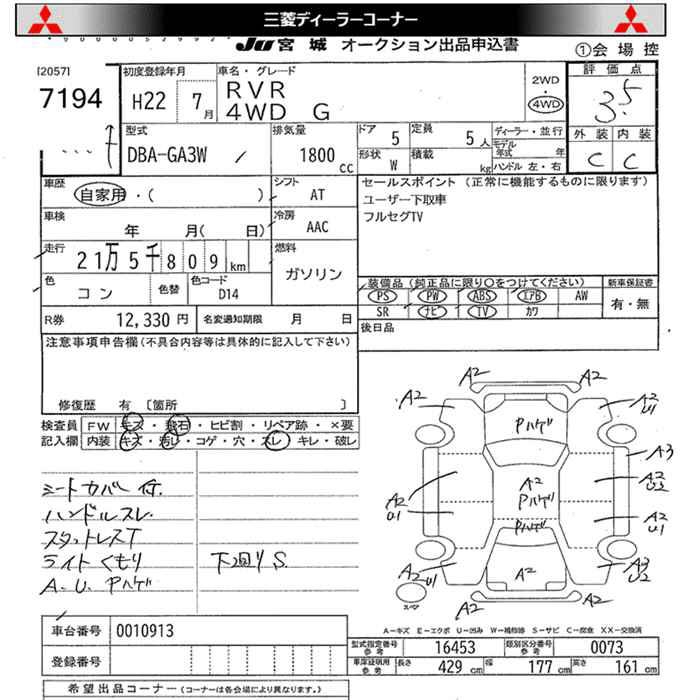 三菱ディーラーコーナー
JU 宮城 オークション出品申込書
①会場控
[2057]
7194
初度登録年月
H22 7月
車名・グレード
RVR
4WD G
2WD
・
4WD
評価点
3.5
外装 内装
C C
型式
DBA-GA3W
排気量
1800 cc
ドア 5
定員 5人
形状 W
積載 kg
ディーラー・並行
モデル年式 年
ハンドル 左・右
車歴
自家用・( )
シフト AT
車検
年 月( 日)
冷房 AAC
走行
21万5千809km
燃料
ガソリン
色
コン
色替
色コード
D14
R券 12,330円
名変通知期限 月 日
セールスポイント (正常に機能するものに限ります)
ユーザー下取車
フルセグTV
装備品(純正品に限り〇をつけてください)
PS PW ABS エアB AW
SR ナビ TV カワ
新車保証書
有・無
後日品
注意事項申告欄(不具合内容等は具体的に記入して下さい)
修復歴 有 [箇所 ]
検査員記入欄
FW キズ・飛石・ヒビ割・リペア跡・×要
内装 キズ・汚レ・コゲ・穴・スレ・キレ・破レ
シートカバー付.
ハンドルスレ.
スタットレスT
ライトくもり
A.U. Pハゲ
下回りS
A2 A2
A2 A2 U1
Pハゲ
A3
A2 U2
A2 Pハゲ
A2 U1
A2 U1
Pハゲ
A2 U1
A2
A3 U2
スペア
A-キズ E-エクボ U-凹み W-補修跡 S-サビ C-腐食 XX-交換済
車台番号 0010913
登録番号
型式指定番号参考 16453
類別区分番号参考 0073
車庫証明用参考 長さ 429cm 幅 177cm 高さ 161cm
希望出品コーナー(コーナーは各会場により異なります。)